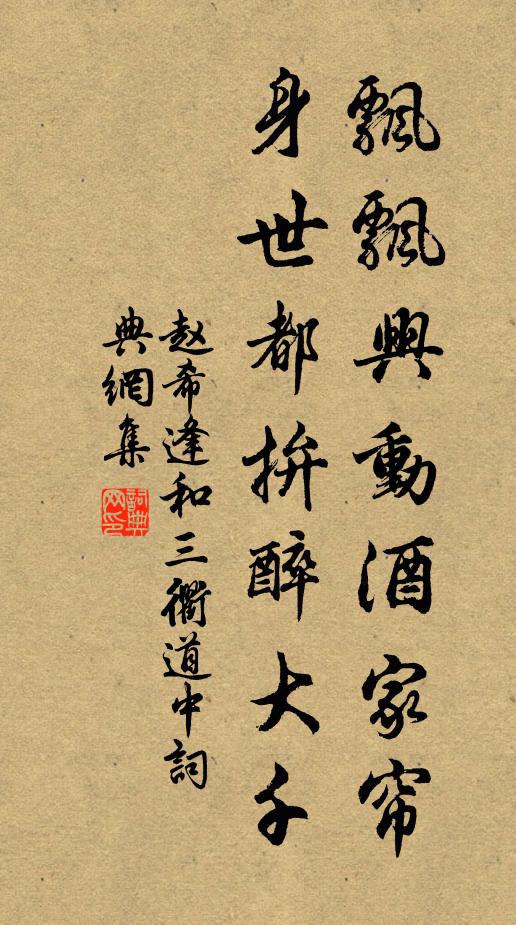 飄飄興動酒家帘
身世都拚醉大千
赵希逢和三衢道中詞
典網集
詞典网印